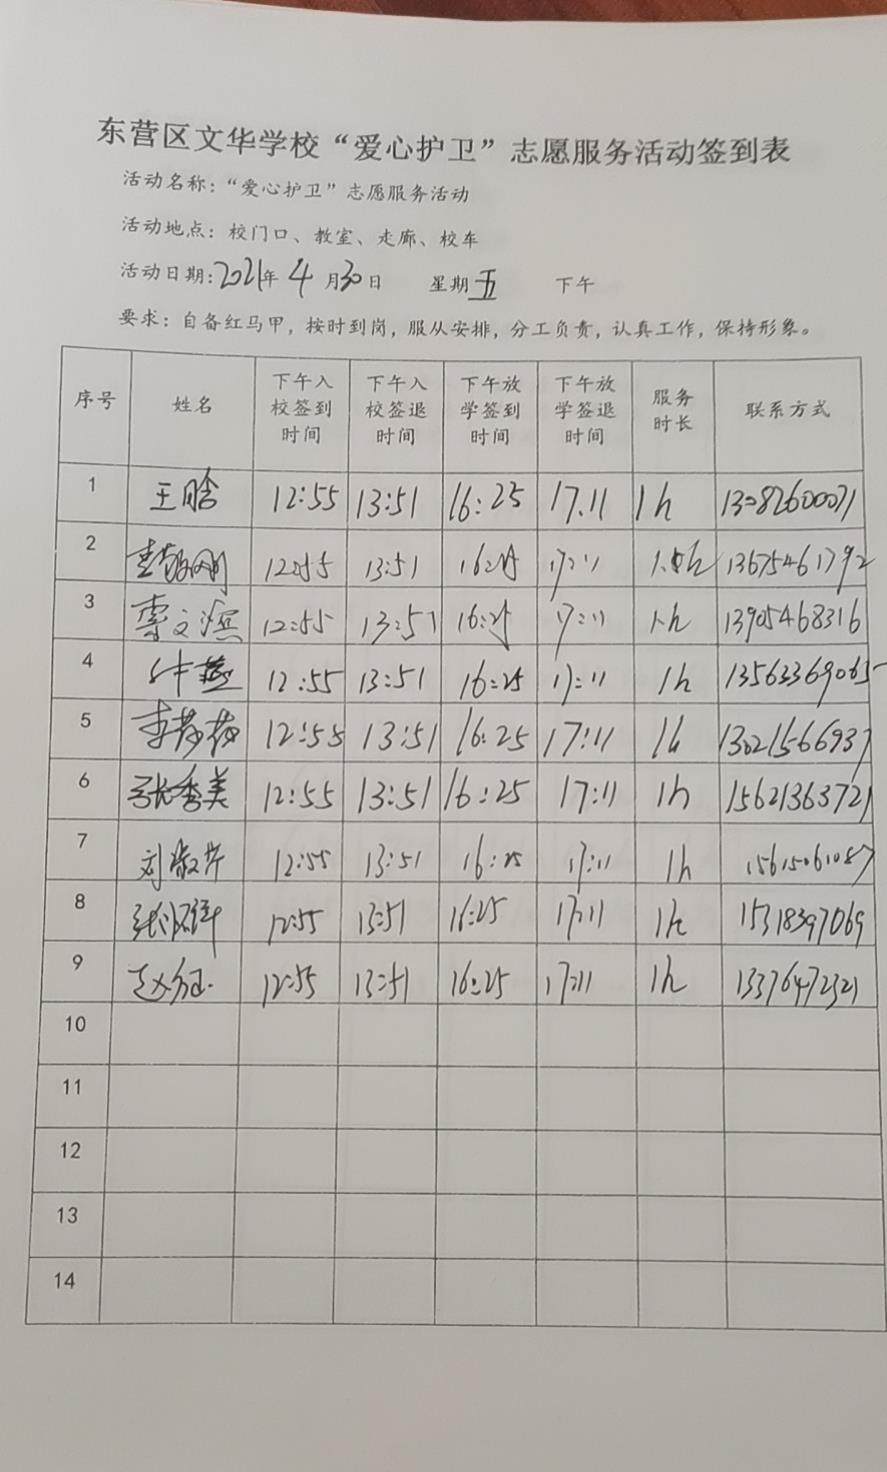 东营区文华学校“爱心护卫”志愿服务活动签到表
活动名称：“爱心护卫”志愿服务活动
活动地点：校门口、教室、走廊、校车
活动日期：2021年 4 月30日 星期五 下午
要求：自备红马甲，按时到岗，服从安排，分工负责，认真工作，保持形象。
序号 姓名 下午入校签到时间 下午入校签退时间 下午放学签到时间 下午放学签退时间 服务时长 联系方式
1 王晗 12:55 13:51 16:25 17.11 1h 13082600071
2 12:55 13:51 16:25 17:11 13675461792
3 李文滨 12:55 13:51 16:25 17:11 1h 13905468316
4 牛燕 12:55 13:51 16:25 17:11 1h 13563369065
5 12:55 13:51 16:25 17:11 1h 13021566937
6 张秀美 12:55 13:51 16:25 17:11 1h 15621363721
7 刘淑芹 12:55 13:51 16:25 17:11 1h 15615061087
8 12:55 13:51 16:25 17:11 1h 15318397069
9 12:55 13:51 16:25 17:11 1h 13376472321
10
11
12
13
14